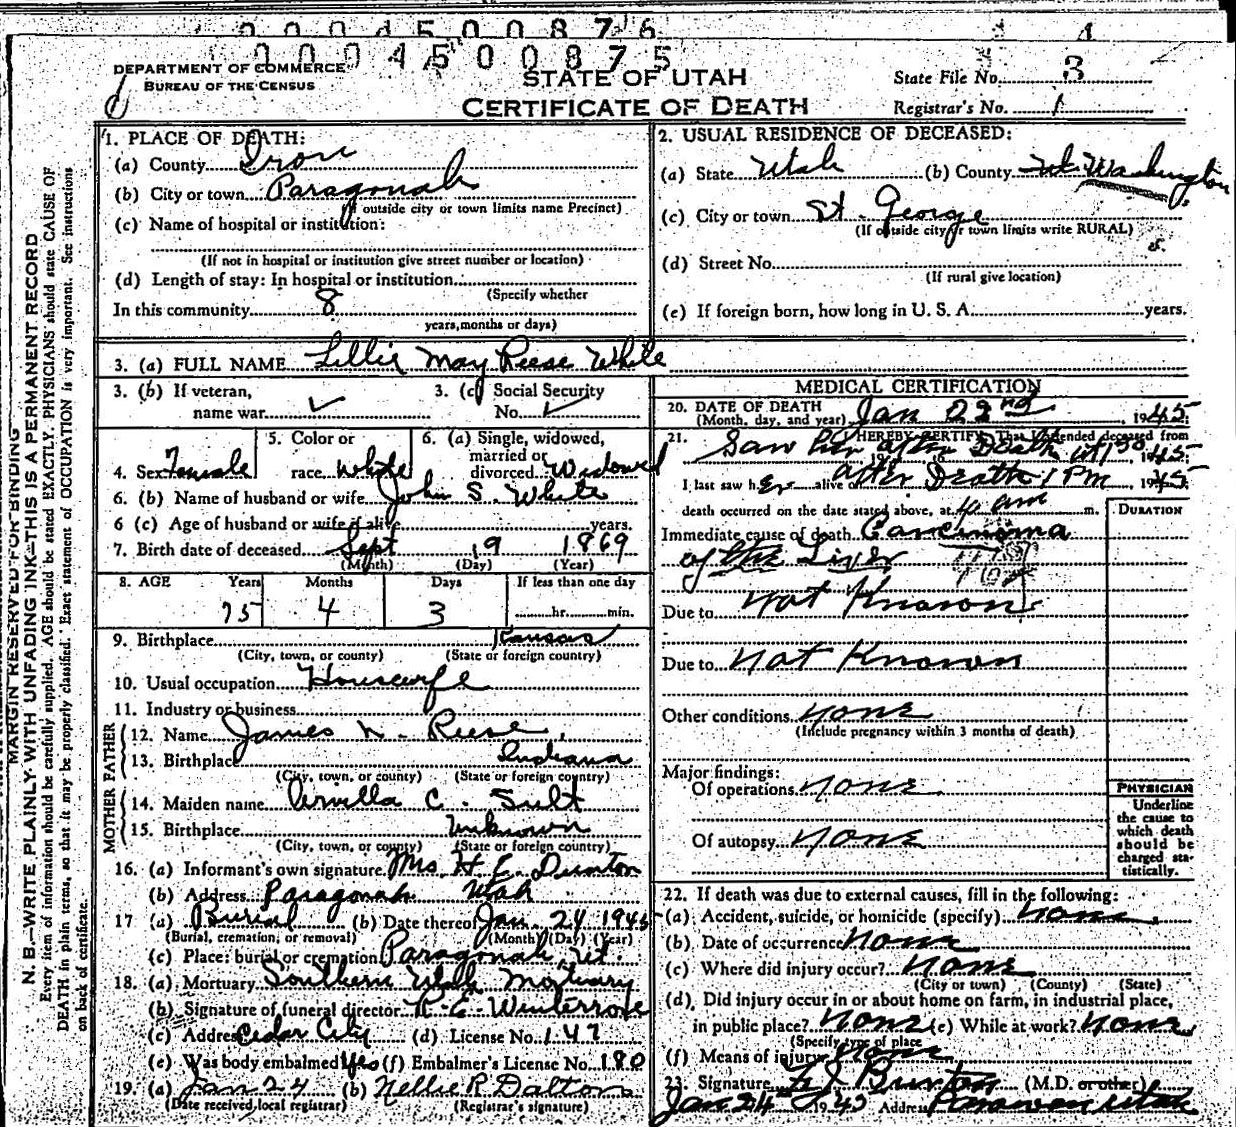 0004500876
0004500875
DEPARTMENT OF COMMERCE
BUREAU OF THE CENSUS
STATE OF UTAH
CERTIFICATE OF DEATH
State File No. 3
Registrar's No. 1
MARGIN RESERVED FOR BINDING
N. B.—WRITE PLAINLY WITH UNFADING INK—THIS IS A PERMANENT RECORD
Every item of information should be carefully supplied. AGE should be stated EXACTLY. PHYSICIANS should state CAUSE OF
DEATH in plain terms, so that it may be properly classified. Exact statement of OCCUPATION is very important. See instructions
on back of certificate.
1. PLACE OF DEATH:
(a) County Iron
(b) City or town Paragonah
(If outside city or town limits name Precinct)
(c) Name of hospital or institution:
(If not in hospital or institution give street number or location)
(d) Length of stay: In hospital or institution
(Specify whether
In this community 8
years, months or days)
2. USUAL RESIDENCE OF DECEASED:
(a) State Utah (b) County Washington
(c) City or town St. George
(If outside city or town limits write RURAL)
(d) Street No.
(If rural give location)
(e) If foreign born, how long in U. S. A. years.
3. (a) FULL NAME Lillie May Reese White
3. (b) If veteran,
name war
3. (c) Social Security
No.
4. Sex Female
5. Color or
race White
6. (a) Single, widowed,
married or
divorced Widowed
6. (b) Name of husband or wife John S. White
6 (c) Age of husband or wife if alive years.
7. Birth date of deceased Sept 19 1869
(Month) (Day) (Year)
8. AGE Years Months Days If less than one day
75 4 3 hr. min.
9. Birthplace Kansas
(City, town, or county) (State or foreign country)
10. Usual occupation Housewife
11. Industry or business
FATHER
12. Name James N. Reese
13. Birthplace Indiana
(City, town, or county) (State or foreign country)
MOTHER
14. Maiden name Arvilla C. Sult
15. Birthplace Unknown
(City, town, or county) (State or foreign country)
16. (a) Informant's own signature Mrs H. E. Dunton
(b) Address Paragonah Utah
17 (a) Burial (b) Date thereof Jan. 24 1945
(Burial, cremation, or removal) (Month) (Day) (Year)
(c) Place: burial or cremation Paragonah, Ut.
18. (a) Mortuary Southern Utah Mortuary
(b) Signature of funeral director R. E. Winterrose
(c) Address Cedar City (d) License No. 147
(e) Was body embalmed Yes (f) Embalmer's License No. 180
19. (a) Jan 24 (b) Nellie R. Dalton
(Date received local registrar) (Registrar's signature)
MEDICAL CERTIFICATION
20. DATE OF DEATH
(Month, day, and year) Jan 22nd, 1945
21. I HEREBY CERTIFY, That I attended deceased from
Saw her after Death at 1 30, 1945
I last saw her alive on after Death 1 PM 1945
death occurred on the date stated above, at 4 am m.
DURATION
Immediate cause of death Carcinoma
of the Liver
Due to not Known
Due to Not Known
Other conditions none
(Include pregnancy within 3 months of death)
Major findings:
Of operations none
Of autopsy none
PHYSICIAN
Underline
the cause to
which death
should be
charged sta-
tistically.
22. If death was due to external causes, fill in the following:
(a) Accident, suicide, or homicide (specify) none
(b) Date of occurrence none
(c) Where did injury occur? none
(City or town) (County) (State)
(d) Did injury occur in or about home on farm, in industrial place,
in public place? none (e) While at work? none
(Specify type of place
(f) Means of injury none
23. Signature Burton (M.D. or other)
Jan 24 1945 Address Parowan Utah